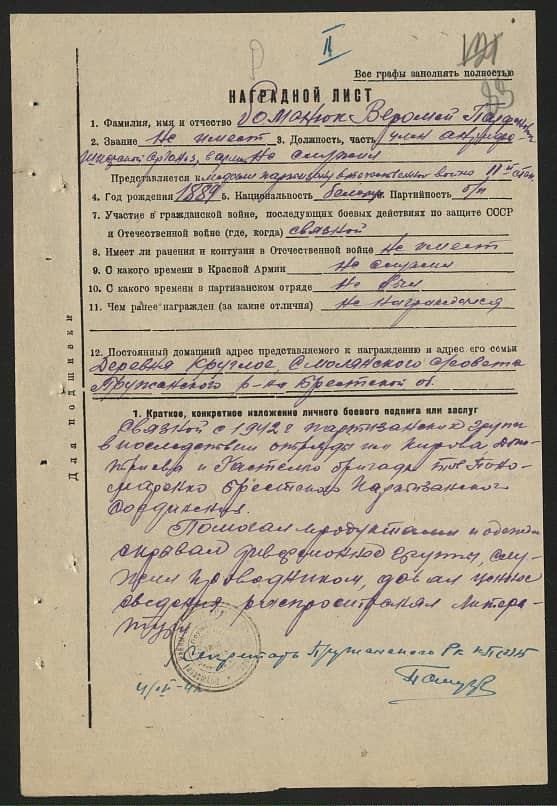 II
Все графы заполнять полностью
НАГРАДНОЙ ЛИСТ
1. Фамилия, имя и отчество Романюк
2. Звание Не имеет 3. Должность, часть член антифа-
не служил
Представляется к медали партизану отечественной войны II й степ.
4. Год рождения 1889 5. Национальность белорус Партийность б/п
7. Участие в гражданской войне, последующих боевых действиях по защите СССР
и Отечественной войне (где, когда) связной
8. Имеет ли ранения и контузии в Отечественной войне Не имеет
9. С какого времени в Красной Армии Не служил
10. С какого времени в партизанском отряде Не был
11. Чем ранее награжден (за какие отличия) Не награждался
Для подшивки
12. Постоянный домашний адрес представляемого к награждению и адрес его семьи
Деревня Круглое, Смолянского с/совета
Пружанского р-на Брестской об.
1. Краткое, конкретное изложение личного боевого подвига или заслуг
Связной с 1942 г партизанских групп
в последствии отряды им Кирова Дми-
триева и Гастелло бригады Поно-
маренко Брестского Партизанского
соединения.
Помогал продуктами и одежд
диверсионные группы, слу-
жил проводником, давал ценные
сведения распространял литера-
туру
Секретарь Пружанского Рк КП(б)Б